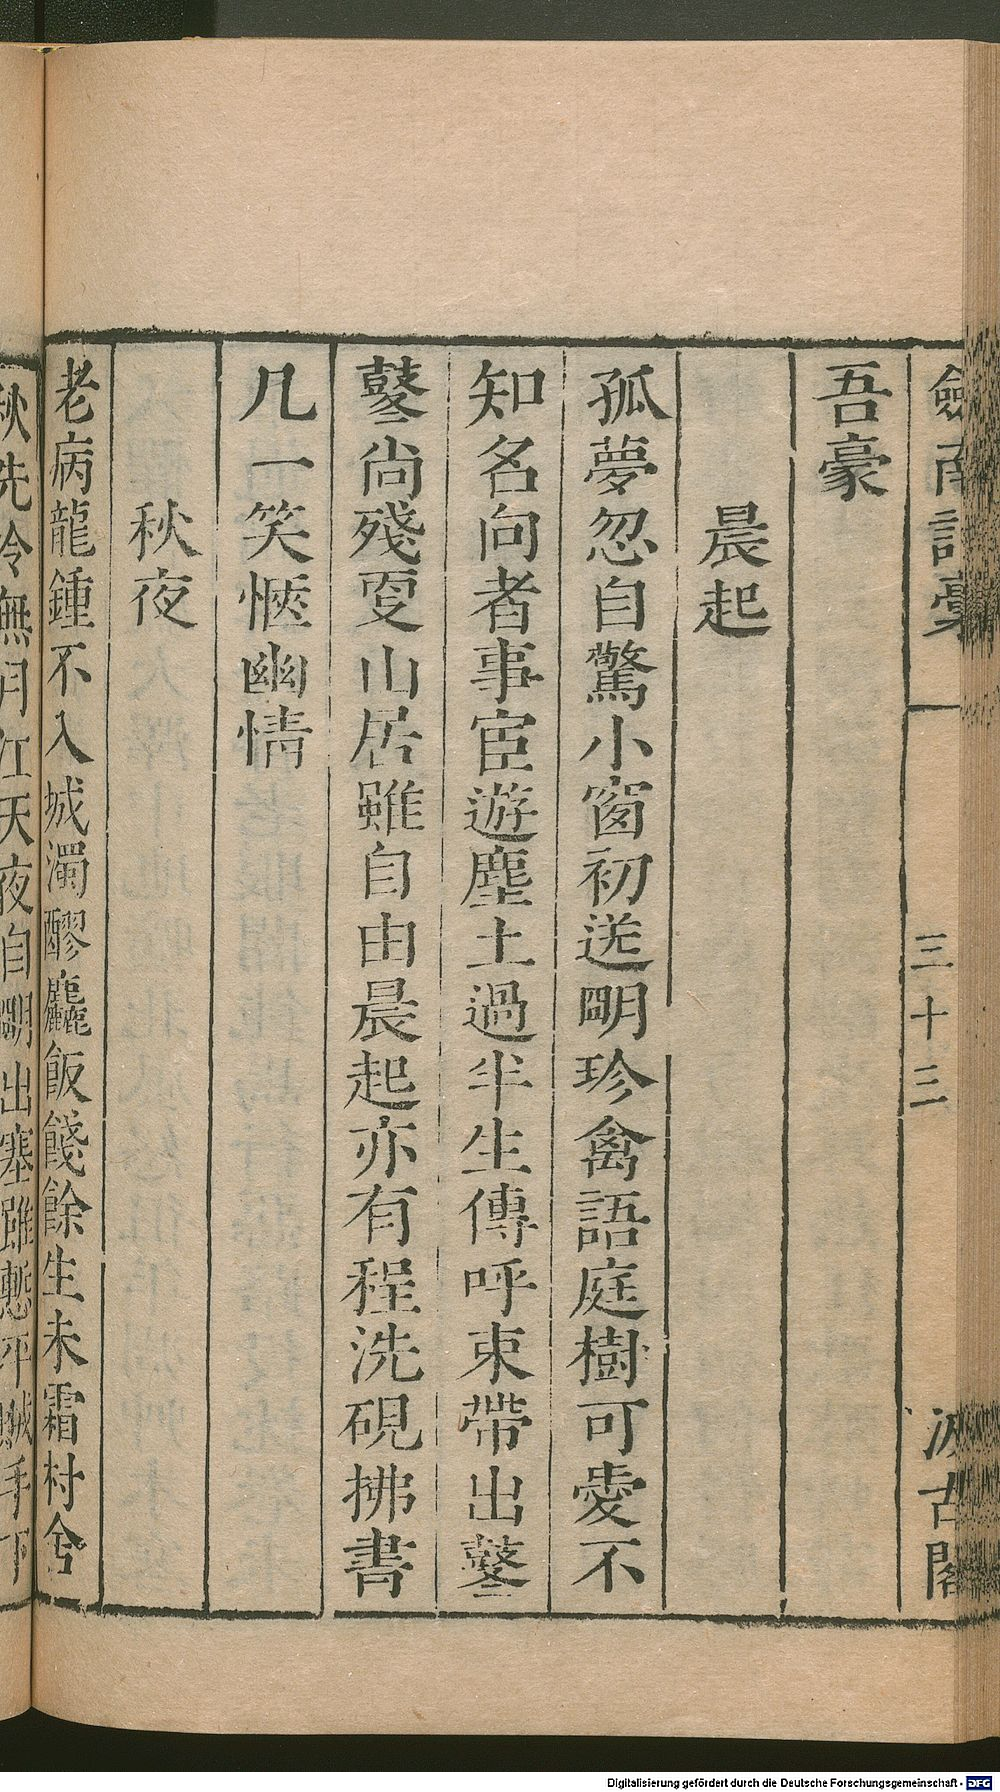 劍南詩稾
三十三
汲古閣
吾豪
晨起
孤夢忽自驚小窗初送明珍禽語庭樹可愛不
知名向者事宦遊塵土過半生傳呼束帶出鼕
鼕尚殘更山居雖自由晨起亦有程洗硯拂書
几一笑愜幽情
秋夜
老病龍鍾不入城濁醪麤飯餞餘生未霜村舍
秋先冷無月江天夜自明出塞雖慙平賊手下
Digitalisierung gefördert durch die Deutsche Forschungsgemeinschaft - DFG